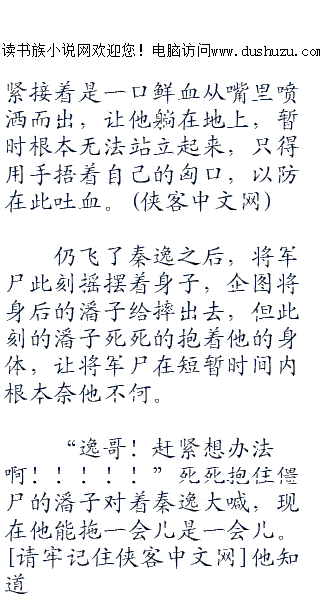 读书族小说网欢迎您！电脑访问www.dushuzu.com
紧接着是一口鲜血从嘴里喷
洒而出，让他躺在地上，暂
时根本无法站立起来，只得
用手捂着自己的匈口，以防
在此吐血。(侠客中文网)
仍飞了秦逸之后，将军
尸此刻摇摆着身子，企图将
身后的潘子给摔出去，但此
刻的潘子死死的抱着他的身
体，让将军尸在短暂时间内
根本奈他不何。
“逸哥！赶紧想办法
啊！！！！！”死死抱住僵
尸的潘子对着秦逸大喊，现
在他能拖一会儿是一会儿。
[请牢记住侠客中文网]他知
道